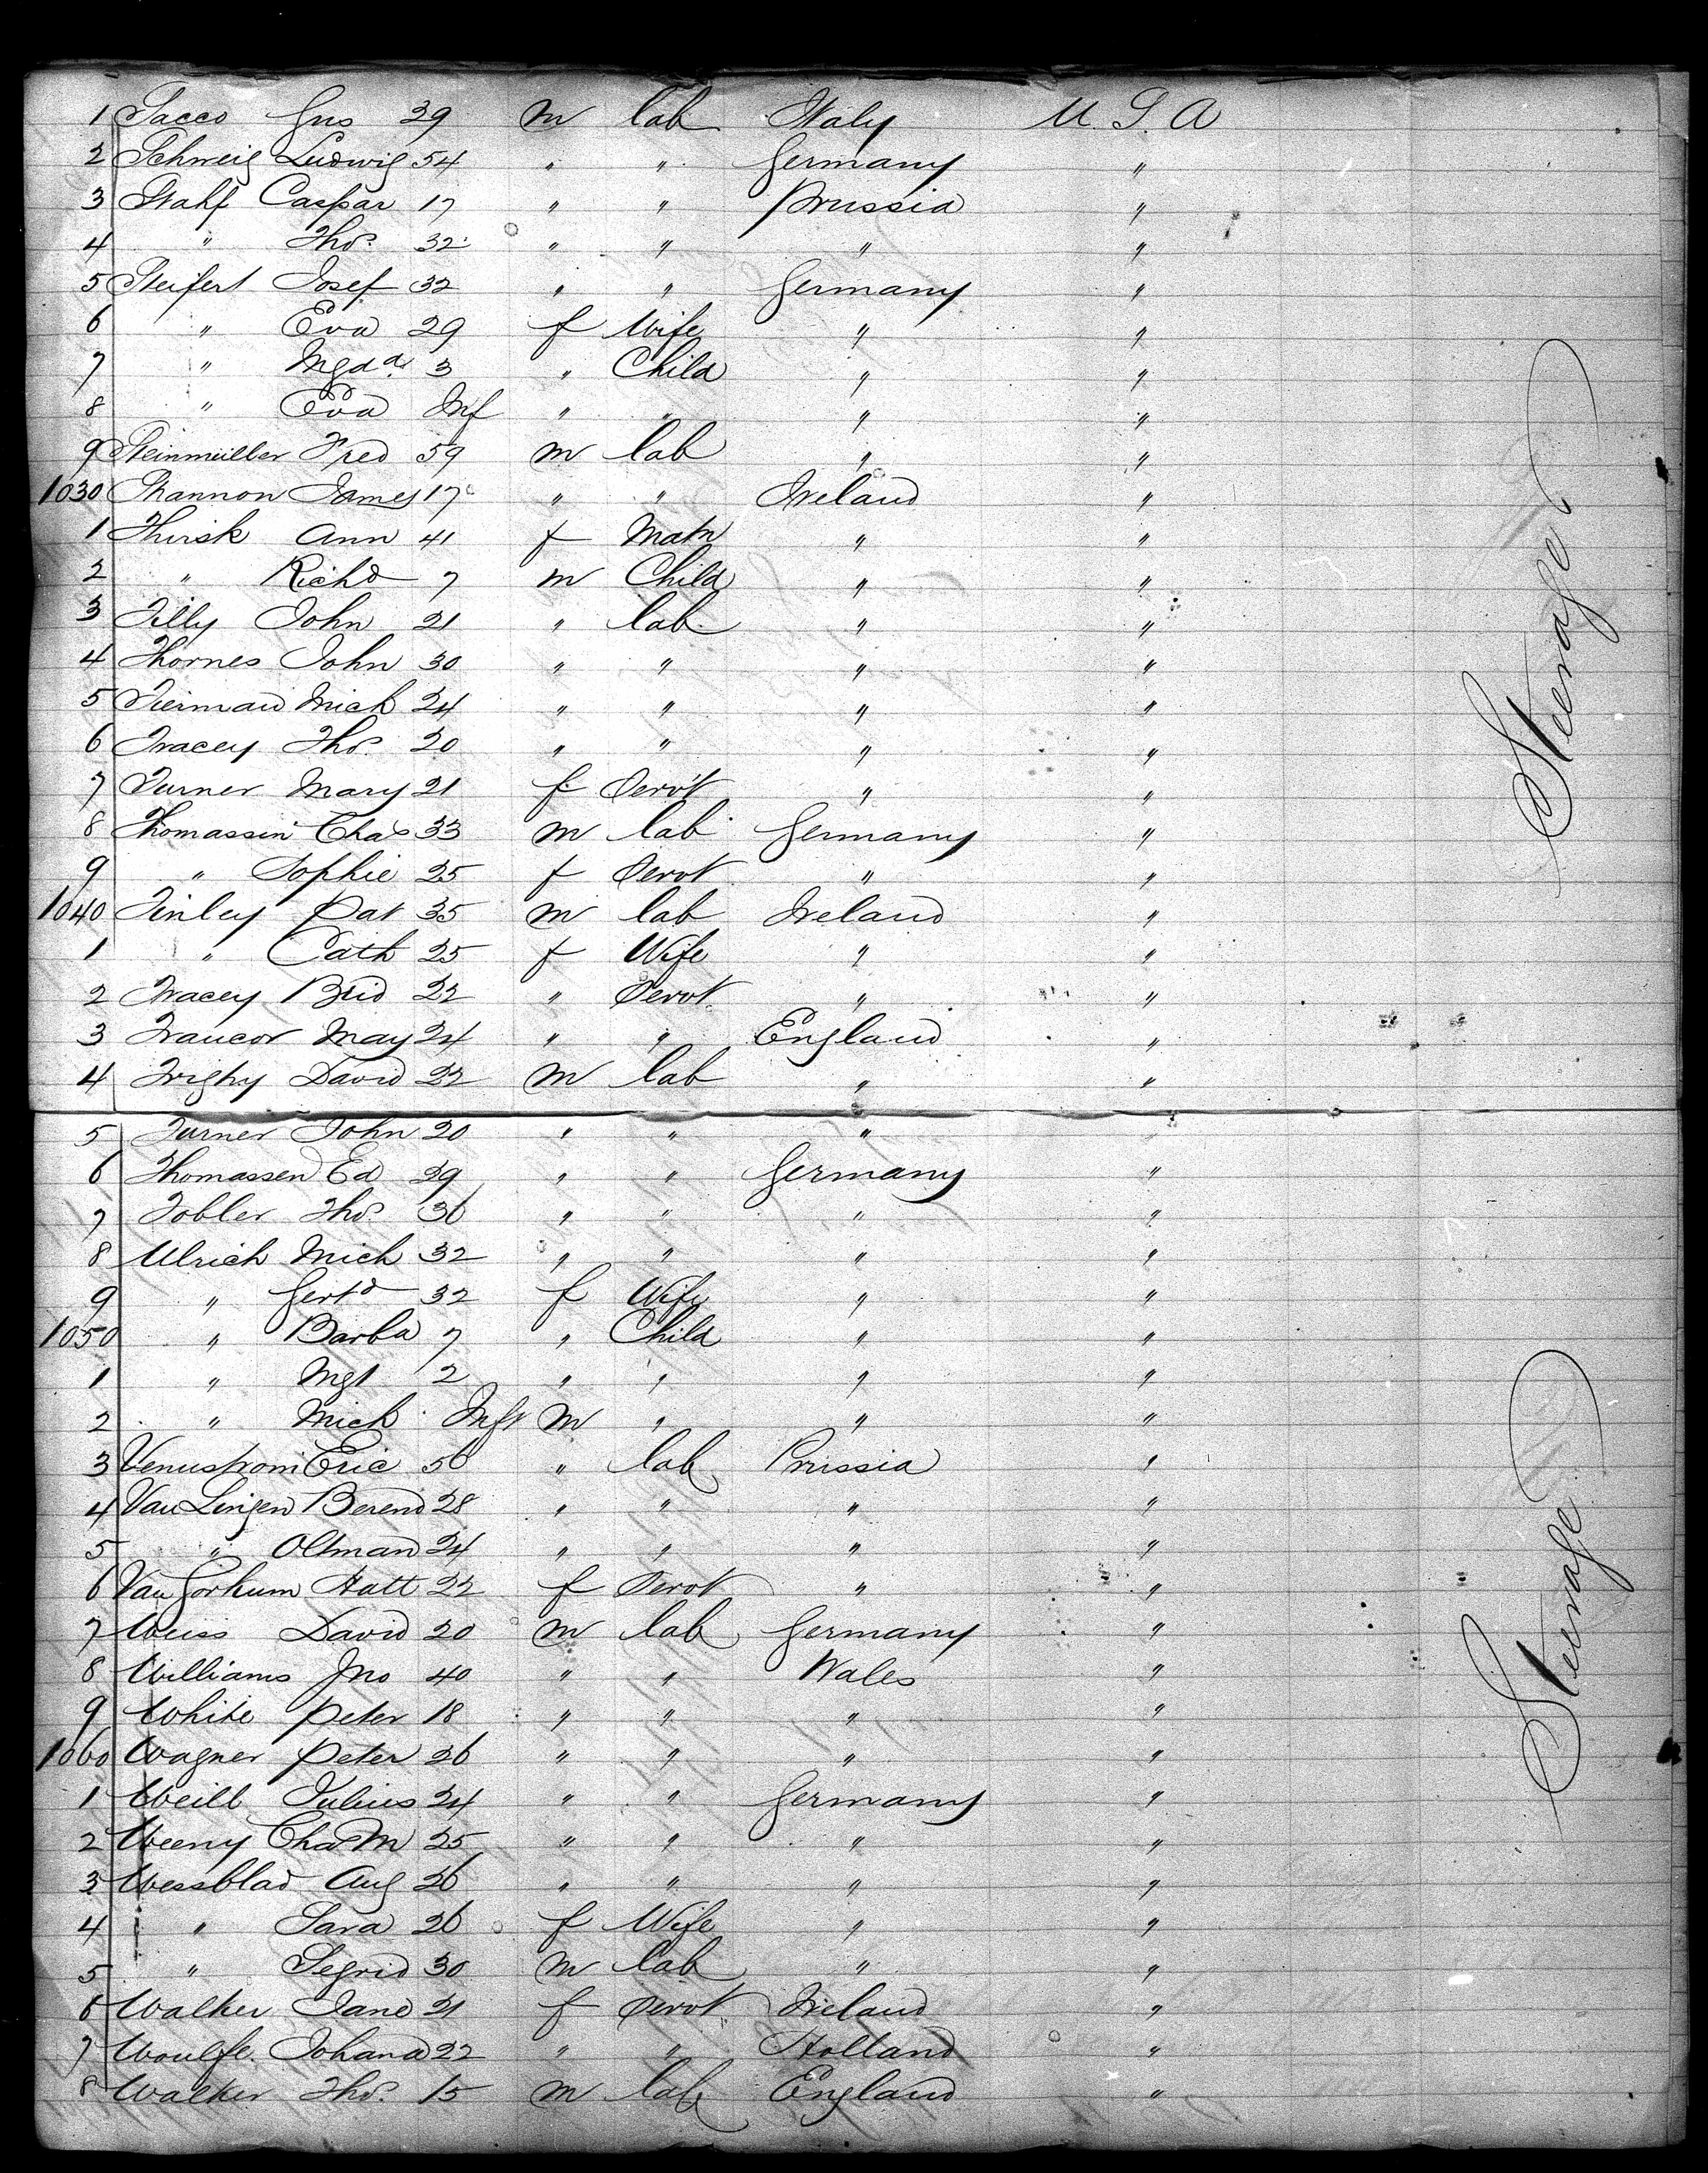 1 Sacco Gus 39 m lab Italy U.S.A
2 Schweig Ludwig 54 " " Germany "
3 Stahf Caspar 17 " " Prussia "
4 " Thos. 32 " " " "
5 Steifert Josef 32 " " Germany "
6 " Eva 29 f Wife " "
7 " Mgda 3 " Child " "
8 " Eva Inf " " " "
9 Steinmüller Fred 59 m lab " "
1030 Shannon James 17 " " Ireland "
1 Thirsk Ann 41 f Matn " "
2 " Richd 7 m Child " "
3 Tilly John 21 " lab " "
4 Thornes John 30 " " " "
5 Tiermain Mich 24 " " " "
6 Tracey Thos. 20 " " " "
7 Turner Mary 21 f Servt " "
8 Thomassin Chas 33 m lab Germany "
9 " Sophie 25 f Servt " "
1040 Tinley Pat 35 m lab Ireland "
1 " Cath 25 f Wife " "
2 Tracey Brid 22 " Servt " "
3 Traucor May 24 " " England "
4 Trighy David 22 m lab " "
Steerage
5 Turner John 20 " " " "
6 Thomassen Ed 29 " " Germany "
7 Tobler Thos. 36 " " " "
8 Ulrich Mich 32 " " " "
9 " Gertd 32 f Wife " "
1050 " Barba 7 " Child " "
1 " Mgt 2 " " " "
2 " Mich Inft m " " "
3 Venustrom Eric 56 " lab Prussia "
4 Van Lingen Berend 28 " " " "
5 " Oltman 24 " " " "
6 Van Gorkum Hatt 22 f Servt " "
7 Weiss David 20 m lab Germany "
8 Williams Jno 40 " " Wales "
9 White Peter 18 " " " "
1060 Wagner Peter 26 " " " "
1 Weill Julius 24 " " Germany "
2 Weeny Chas M 25 " " " "
3 Wessblad Aug 26 " " " "
4 " Sara 26 f Wife " "
5 " Segrid 30 m lab " "
6 Walker Jane 21 f Servt Ireland "
7 Woulfe Johana 22 " " Holland "
8 Walker Thos. 15 m lab England "
Steerage